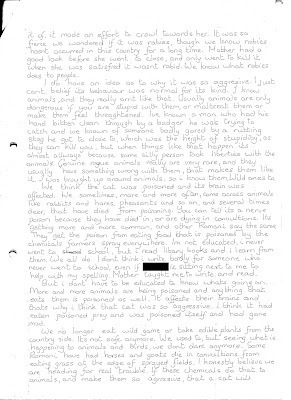 it if it made an effort to crawl towards her. It was so
fierce we wondered if it was rabies, though we know rabies
hasn't occurred in this country for a long time. Mother had a
good look before she went to close, and only went to kill it
when she was satisfied it wasn't rabid. We know what rabies
does to people.
I do have an idea as to why it was so aggressive. I just
can't belief its behaviour was normal for its kind. I know
animals, and they really aint like that. Usually animals are only
dangerous if you are stupid with them, or maltreat them or
make them feel threatened. I've known a man who had his
hand bitten clean through by a badger he was trying to
catch and we known of someone badly gored by a rutting
stag he got to close to, which was the height of stupidity, as
they can kill you, but when things like that happen its
almost always because some silly person took liberties with the
animals. Genuine rogue animals really are very rare, and they
usually have something wrong with them, that makes them like
it. I was brought up around animals, so I know them wild ones to.
We think the cat was poisoned and its brain was
affected. We sometimes, more and more often, come across animals
like rabbits and hares, pheasants and so on, and several times
deer, that have died from poisoning. You can tell its a nerve
poison because they have died in, or are dying in convultions. Its
getting more and more common, and other Romani say the same.
They get the poison from eating food thats is poisoned by the
chemicals farmers spray everywhere. Im not educated, I never
went to school, but I read library books and I learn from
them. We all do. I don't think I write badly for someone who
never went to school, even if is sitting next to me to
help with my spelling. Mother taught me to write and read.
But I dont have to be educated to know whats going on.
More and more animals are being poisoned and anything that
eats them is poisoned as well. It affects their brains and
thats why I think that cat was so aggressive. I think it had
eaten poisoned prey and was poisoned itself and had gone
mad.
We no longer eat wild game or take edible plants from the
country side. Its not safe anymore. We used to, but seeing what is
happening to animals and birds, we dont dare anymore. Some
Romani, have had horses and goats die in convultions from
eating grass at the edge of sprayed fields. I honestly believe we
are heading for real trouble. If these chemicals do that to
animals, and make them so agressive, that a cat will